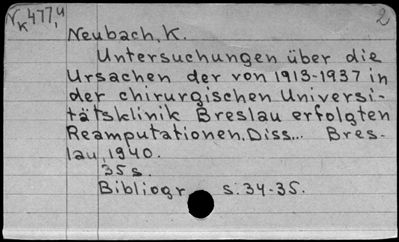 N K 477,4 2
Neubach, K.
Untersuchungen über die
Ursachen der von 1913-1937 in
der chirurgischen Universi-
tätsklinik Breslau erfolgten
Reamputationen. Diss... Bres-
lau, 1940.
35 s.
Bibliogr. s. 34-35.